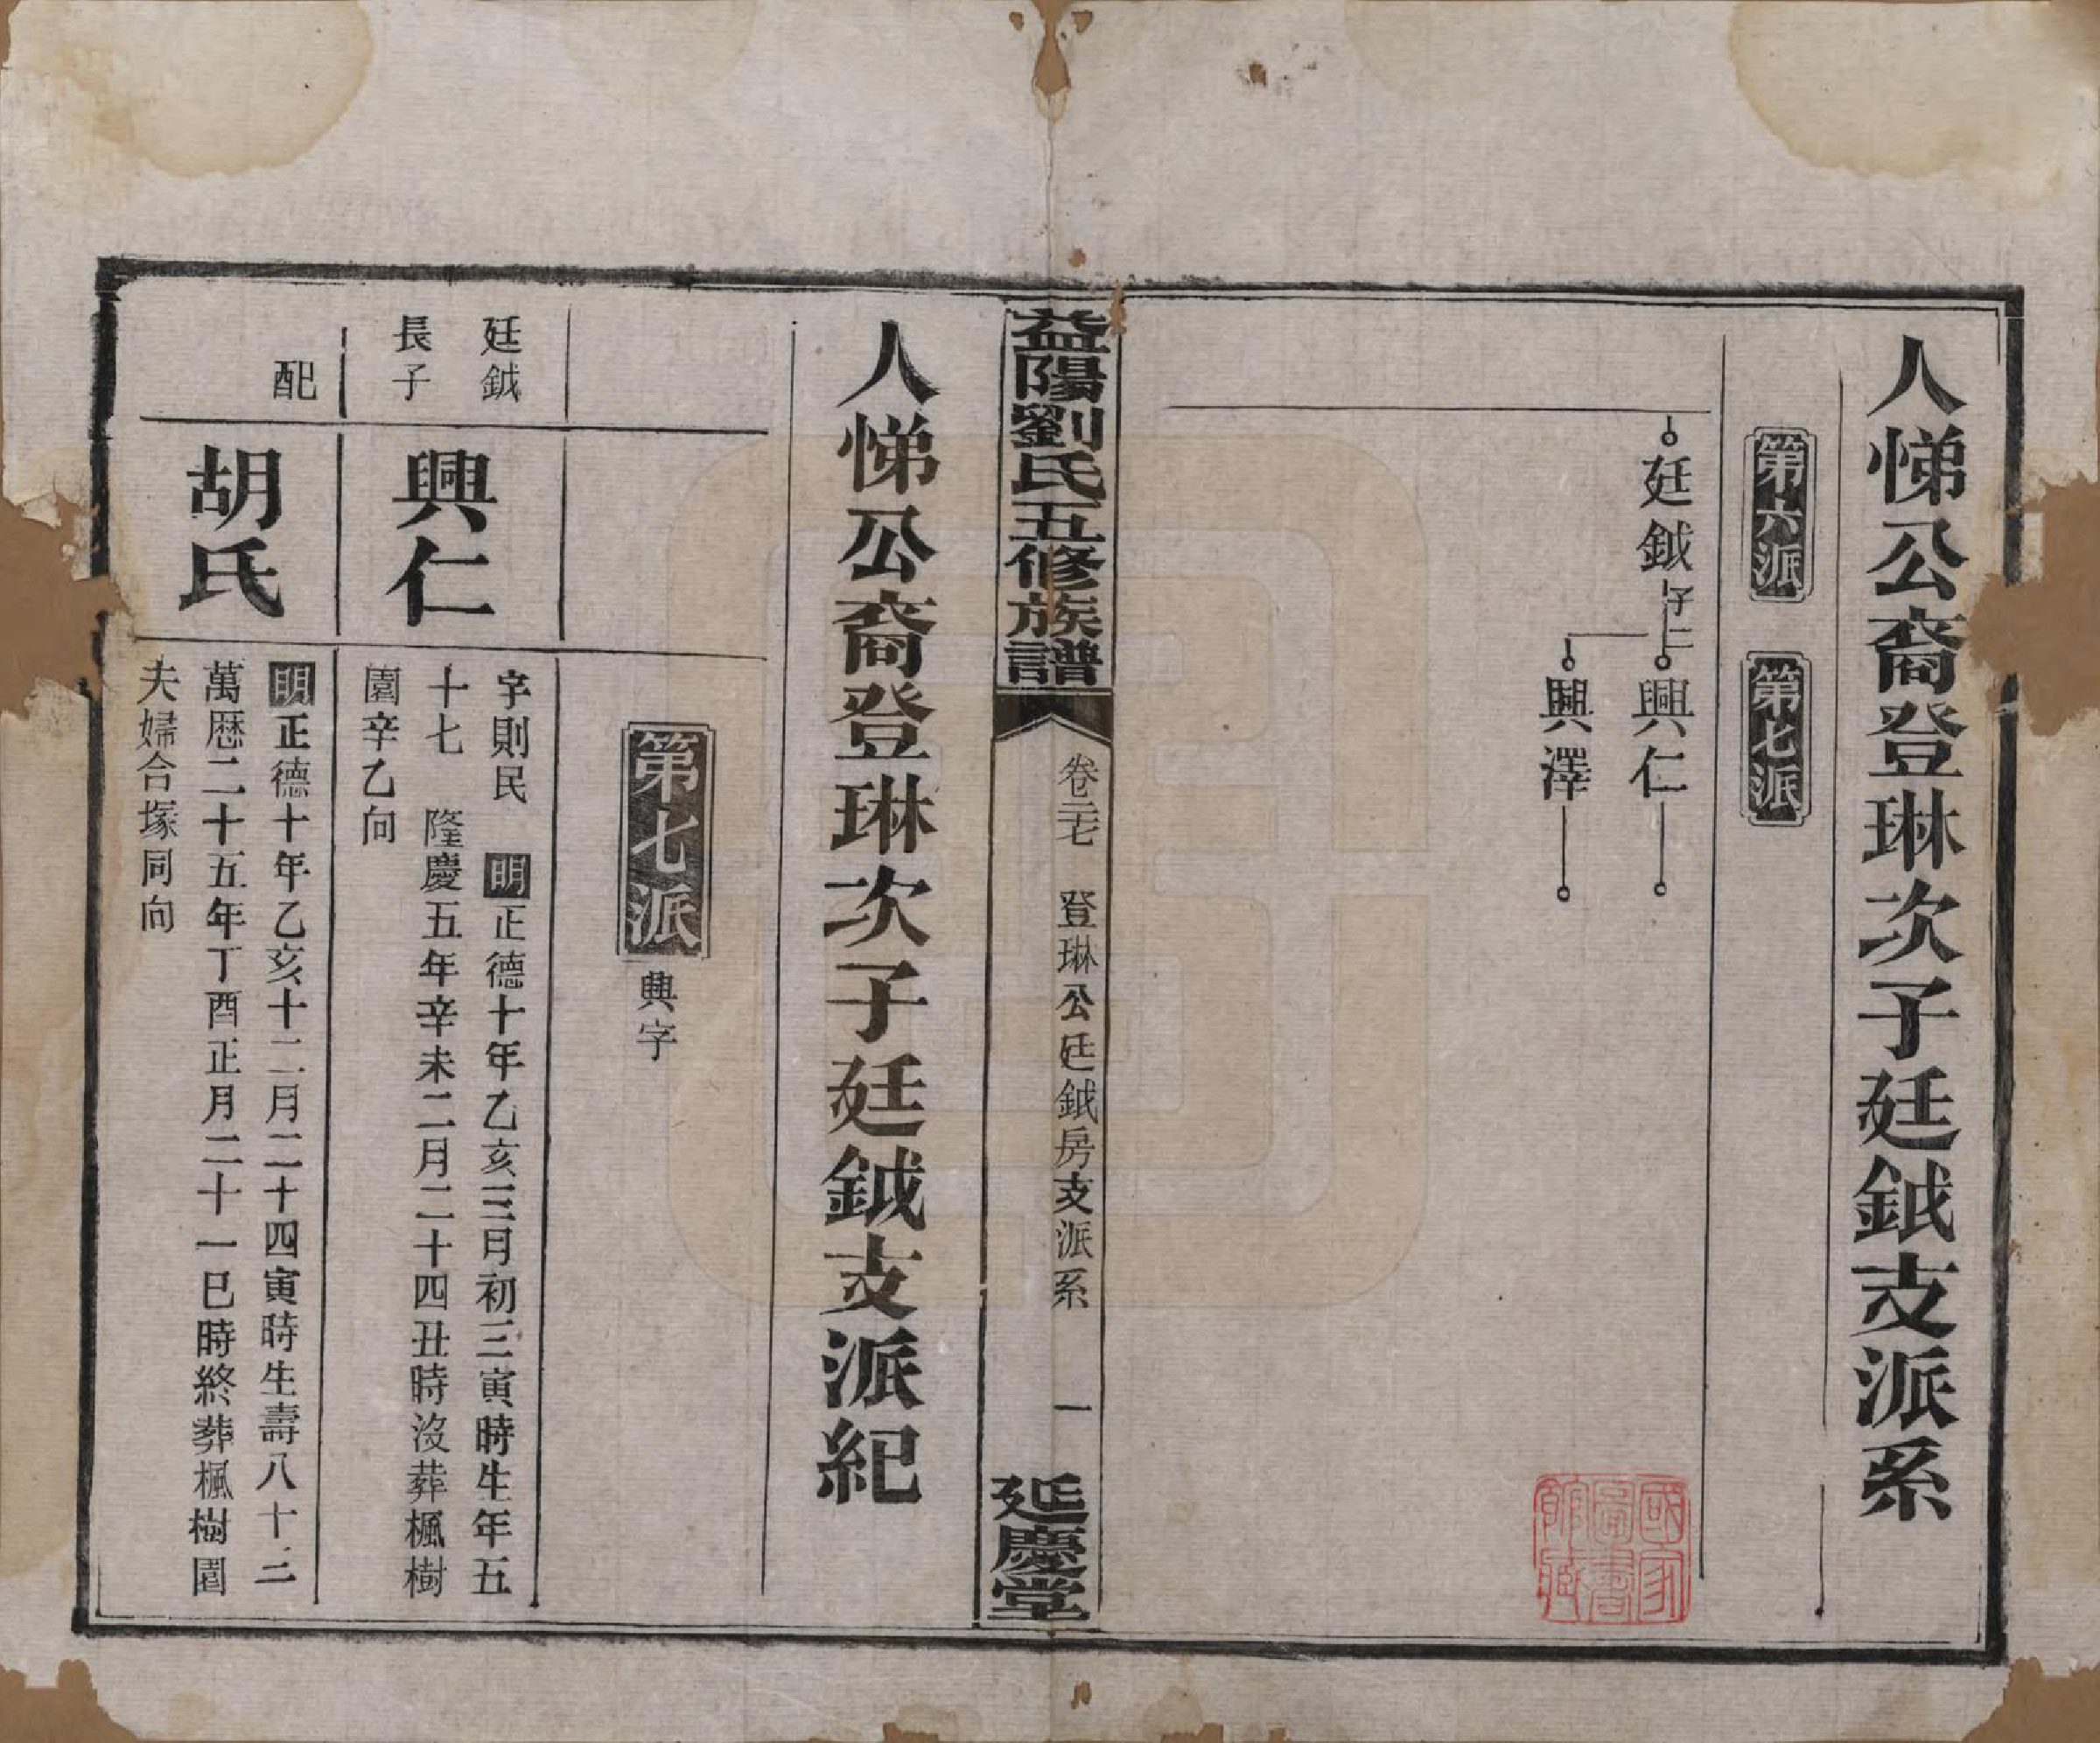 人悌公裔登琳次子廷鉞支派系
第六派
第七派
廷鉞
子二
興仁
興澤
國家圖書館藏
益陽劉氏五修族譜
卷二七
登琳公廷鉞房支派系
一
延慶堂
人悌公裔登琳次子廷鉞支派紀
第七派 興字
廷鉞
長子
興仁
字則民 明正德十年乙亥三月初三寅時生年五
十七 隆慶五年辛未二月二十四丑時沒葬楓樹
園辛乙向
配
胡氏
明正德十年乙亥十二月二十四寅時生壽八十三
萬歷二十五年丁酉正月二十一巳時終葬楓樹園
夫婦合塚同向